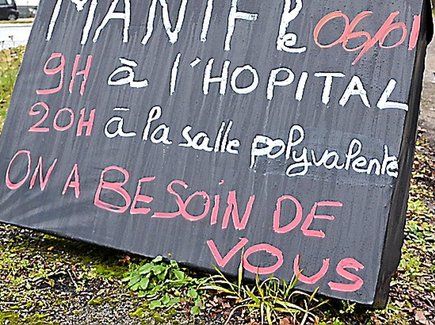 MANIF le 06/01
9H à l'HOPITAL
20H à la salle polyvalente
ON A BESOIN DE
VOUS